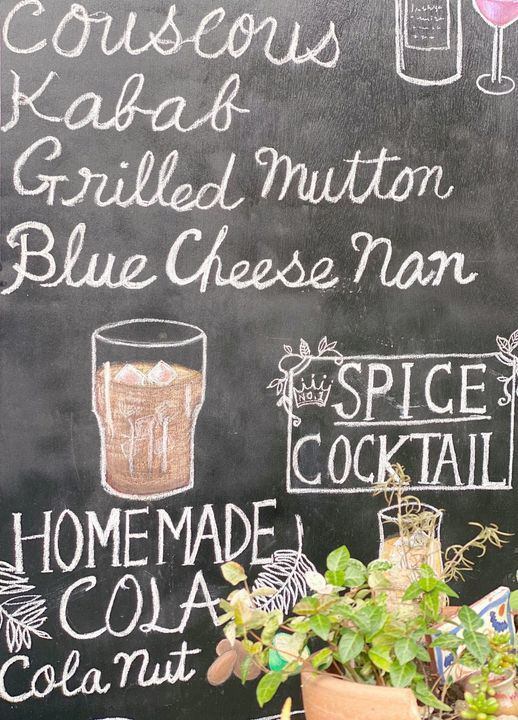 Couscous
Kabab
Grilled Mutton
Blue Cheese Nan
NO.1
SPICE
COCKTAIL
HOMEMADE
COLA
Cola nut